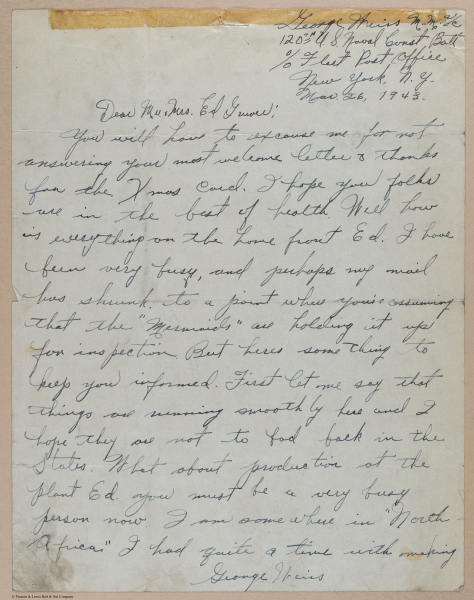 George Weiss M.M. 2/c
120th U.S. Naval Const. Batt
c/o Fleet Post, Office
New York. N.Y.
Mar. 26, 1943.
Dear Mr. & Mrs. Ed
You will have to excuse me for not
answering your most welcome letter & thanks
for the Xmas card. I hope you folks
are in the best of health. Well how
is everything on the home front Ed. I have
been very busy, and perhaps my mail
has shrunk, to a point where you're assuming
that the "Mermaids" are holding it up
for inspection. But heres something to
keep you informed. First let me say that
things are running smoothly here and I
hope they are not to bad back in the
States. What about production at the
plant Ed. you must be a very busy
person now. I am somewhere in "North
Africa" I had quite a time with making
George Weiss